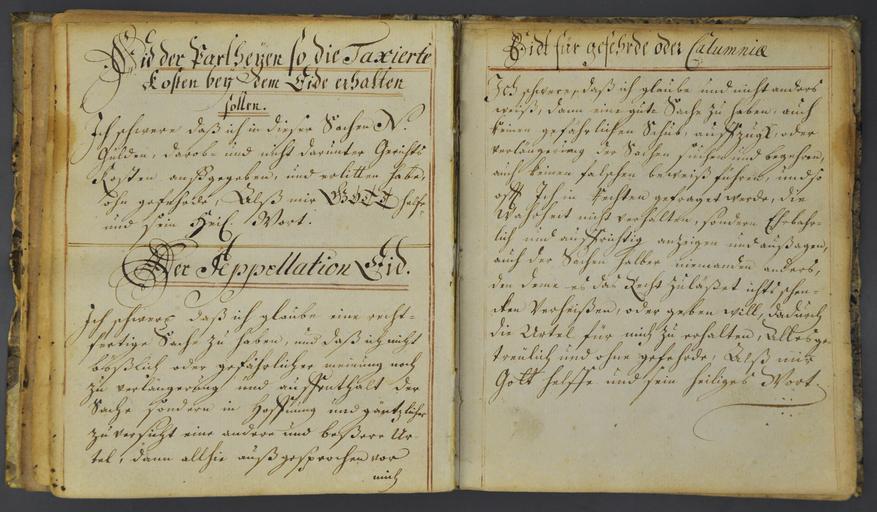 Eid der Partheyen so die Taxierte
Kosten bey dem Eide erhalten
sollen.
Ich schwere daß ich in dieser Sachen N.
Gulden, darob und nicht darunter Gerichts
Kosten außgegeben, und erlitten habe,
ohn gefehrde, Alß mir GOTT helffe
und sein Heil. Wort.
Der Appellation Eid.
Ich schwere daß ich glaube eine recht-
fertige Sache zu haben, und daß ich nicht
bößlich oder gefährlicher meinung noch
zu verlängerung und auffenthalt der
Sache sondern in Hoffnung und gäntzlicher
zuversicht eine andere und beßere Ur-
tel, dann allhie außgesprochen vor
mich
Eidt für gefehrde oder Calumniæ
Ich schwere, daß ich glaube und nicht anders
weiß, dann eine gute Sache zu haben, auch
keinen gefährlichen Schub, außzug, oder
verlängerung der Sachen suchen und begehren,
auch keinen falschen beweiß führen, und so
offt Ich in Rechten gefraget werde, die
Wahrheit nicht verhalten, sondern Ehrbahr-
lich und auffrichtig anzeigen und außsagen,
auch der Sachen halber niemanden anders,
den deme es das Recht zuläßet ichts schen-
cken verheißen, oder geben will, dadurch
die Urtel für mich zu erhalten, Alles ge-
treulich und ohne gefehrde, Alß mir
Gott helffe und sein heiliges Wort.